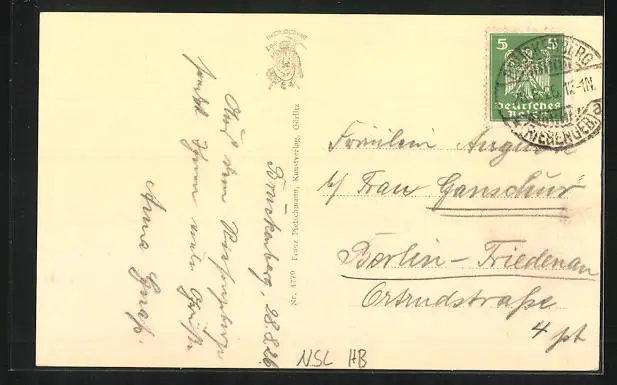 Brückenberg, 28.8.26
Auf dem Riesengebirge
sendet Ihnen viele Grüße
Anna
Nr. 4779 Franz Pietschmann, Kunstverlag, Görlitz
5 5
Deutsches
Reich
BRÜCKENBERG
(RIESENGEB.) a
Fräulein
b/ Frau Ganschur
Berlin - Friedenau
Ortrudstraße
4 pt
NSL HB